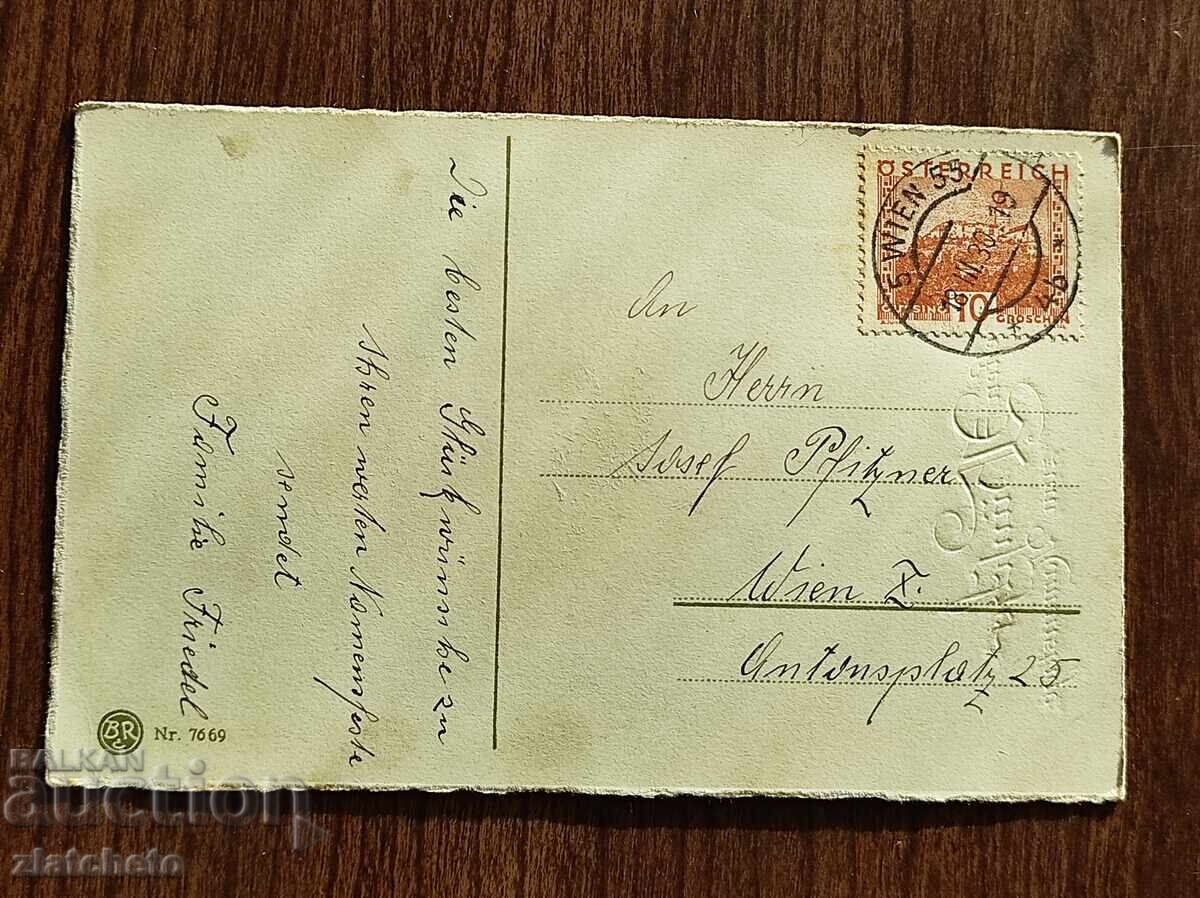 Die besten Glückwünsche zu
Ihren werten Namensfeste
sendet
Familie Friedel
BR
Nr. 7669
ÖSTERREICH
10
GROSCHEN
5 WIEN 55
18 III 30 - 19
4b
An
Herrn
Josef Pfitzner
Wien X.
Antonsplatz 25
BALKAN
auction
zlatcheto